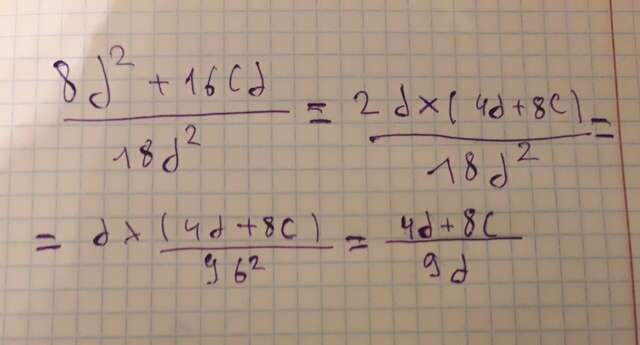 8d² + 16Cd / 18d² = 2d × (4d + 8C) / 18d² =
= d × (4d + 8C) / 96² = 4d + 8C / 9d